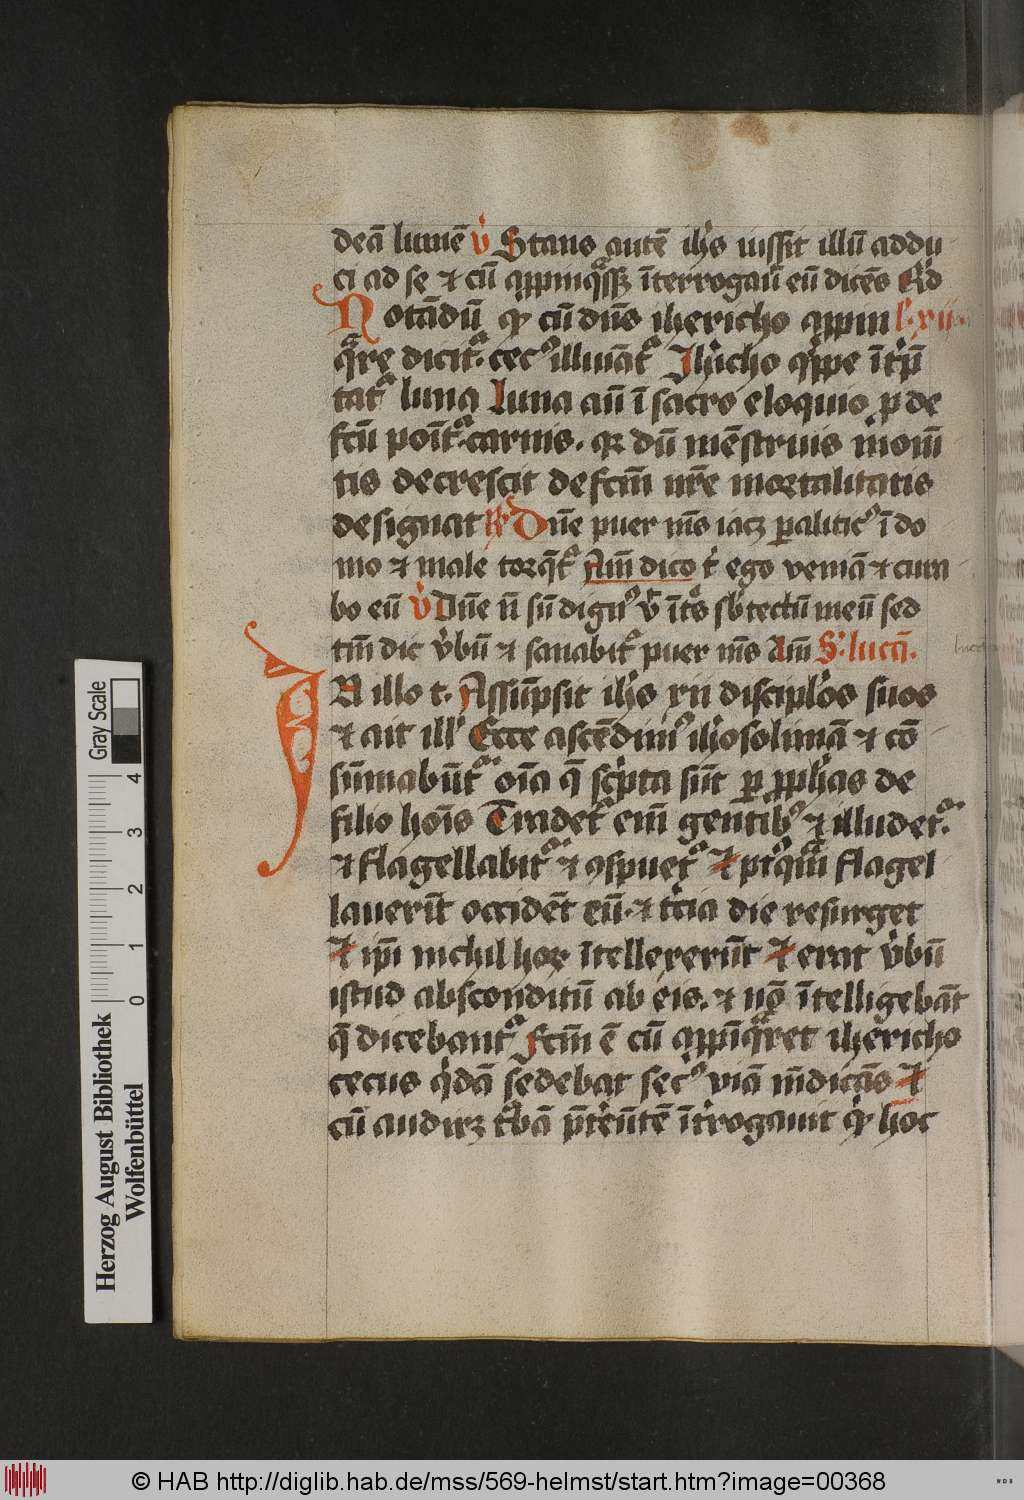 deā lumē v̄ Stans autē ih̄s iussit illū addu
ci ad se ⁊ cū appīnqͣssꝫ īterrogauͥ eū dicēs Qͥd
Notādū qͥ cū dn̄s ihericho appin l. xii.
qͣre dicit᷑ cecꝰ illuīat᷑ Jhͥcho qͥppe ītͥp̄
tat᷑ luna Luna aū ī sacro eloquio ꝓ de
fcū poīt᷑ carnis. qꝛ dū mēstruis momē
tis decrescit defcm̄ nr̄e mortalitatis
designat R̸ Dn̄e puer m̄s iacꝫ paͣliticꝰ ī do
mo ⁊ male torqͣt᷑ Am̄ dico tͥ ego veniā ⁊ cura
bo eū v̄ Dn̄e n̄ sū dignꝰ vͭ ītͤs sb̓ tectū meū sed
tm̄ dic v̓bū ⁊ sanabit᷑ puer m̄s Am̄ S. luca̅.
IN illo t. Assūpsit ih̄s xii discipl̓os suos
⁊ ait ill̓ Ecce ascēdimꝰ ih̓osolimā ⁊ cō
sūmabūt᷑ oīa q̄ scͥpta sūt ꝑ ꝓph̄as de
filio hoīs Tradet᷑ eīm gentibꝰ ⁊ illudet᷑
⁊ flagellabit᷑ ⁊ ꝯspuet᷑ Et ptꝰqͣm̄ flagel
lauerīt occidēt eū. ⁊ tͥcia die resurget
Et ip̄i nichil hoꝝ ītellexerūt Et erat v̓bū
istud absconditū ab eis. ⁊ nō ītelligebāt
q̄ dicebant᷑ fcm̄ ē cū appīqͣret iherichо
cecus qͥdā sedebat secꝰ viā m̄dicās Et
cū audirꝫ tͥbā p̄tͤūtē ītͥrogauit qͥ hoc
Herzog August Bibliothek
Wolfenbüttel
Gray Scale
4
3
2
1
0
© HAB http://diglib.hab.de/mss/569-helmst/start.htm?image=00368